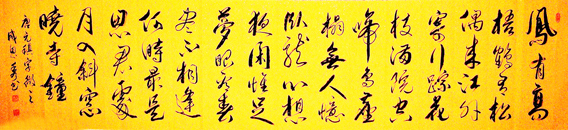 鳳有高
梧鶴有松
偶来江外
寄行蹤花
枝满院空
啼鳥塵
榻無人憶
卧龍心想
夜閑惟足
夢眼看春
盡不相逢
何時最是
思君處
月入斜窗
曉寺鐘
唐元稹